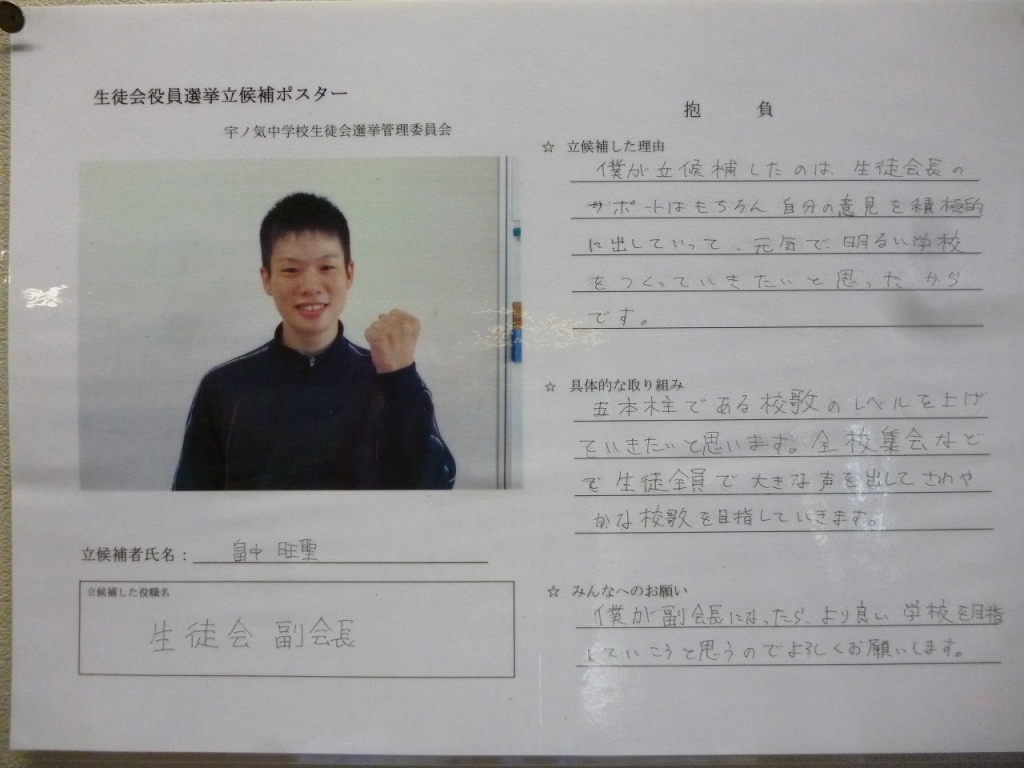 生徒会役員選挙立候補ポスター
宇ノ気中学校生徒会選挙管理委員会
立候補者氏名：畠中 旺聖
立候補した役職名
生徒会 副会長
抱 負
☆ 立候補した理由
僕が立候補したのは、生徒会長の
サポートはもちろん自分の意見を積極的
に出していって、元気で明るい学校
をつくっていきたいと思ったから
です。
☆ 具体的な取り組み
五本柱である校歌のレベルを上げ
ていきたいと思います。全校集会など
で生徒全員で大きな声を出してさわや
かな校歌を目指していきます。
☆ みんなへのお願い
僕が副会長になったら、より良い学校を目指
していこうと思うのでよろしくお願いします。